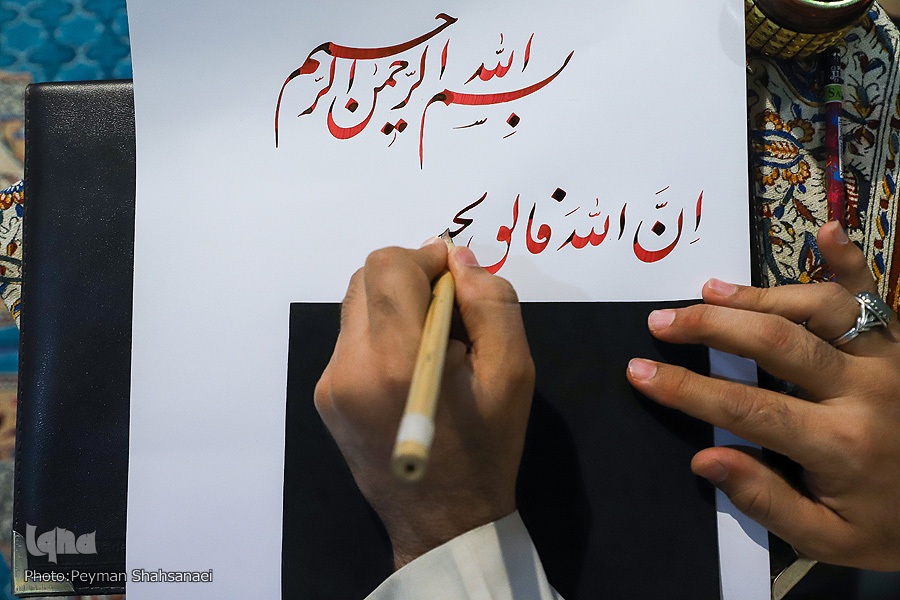 بسم الله الرَّحمن الرَّحيم
اِنَّ اللّهَ فالق
Iqna
Photo:Peyman Shahsanaei